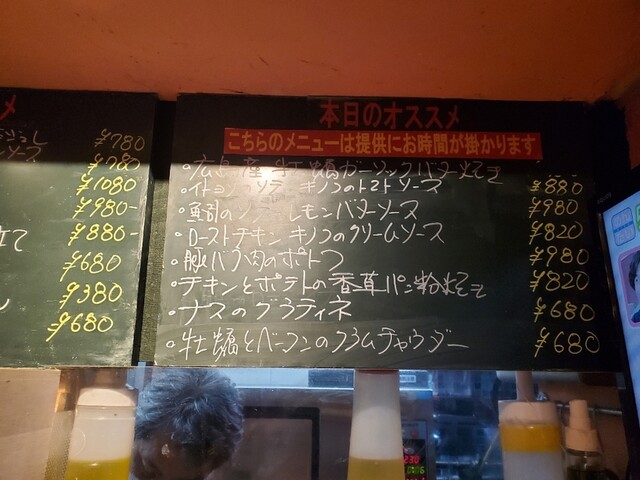 メ
¥780
ソース ¥780
¥1080
¥980-
¥880-
¥680
¥380
¥680
本日のオススメ
こちらのメニューは提供にお時間が掛かります
・広島産牡蠣ガーリックバター焼き
・イトヨリのソテー キノコのトマトソース ¥880
・のソテー レモンバターソース ¥980
・ローストチキン キノコのクリームソース ¥820
・豚バラ肉のポトフ ¥980
・チキンとポテトの香草パン粉焼き ¥820
・ナスのグラティネ ¥680
・牡蠣とベーコンのクラムチャウダー ¥680